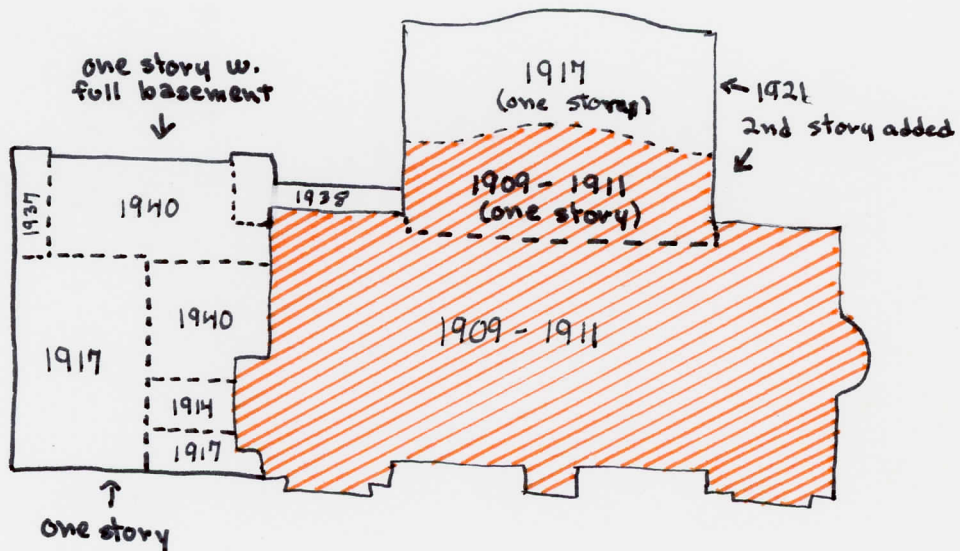 one story w.
full basement
1917
(one story)
1921
2nd story added
1937
1940
1938
1909 - 1911
(one story)
1940
1909 - 1911
1917
1914
1917
one story